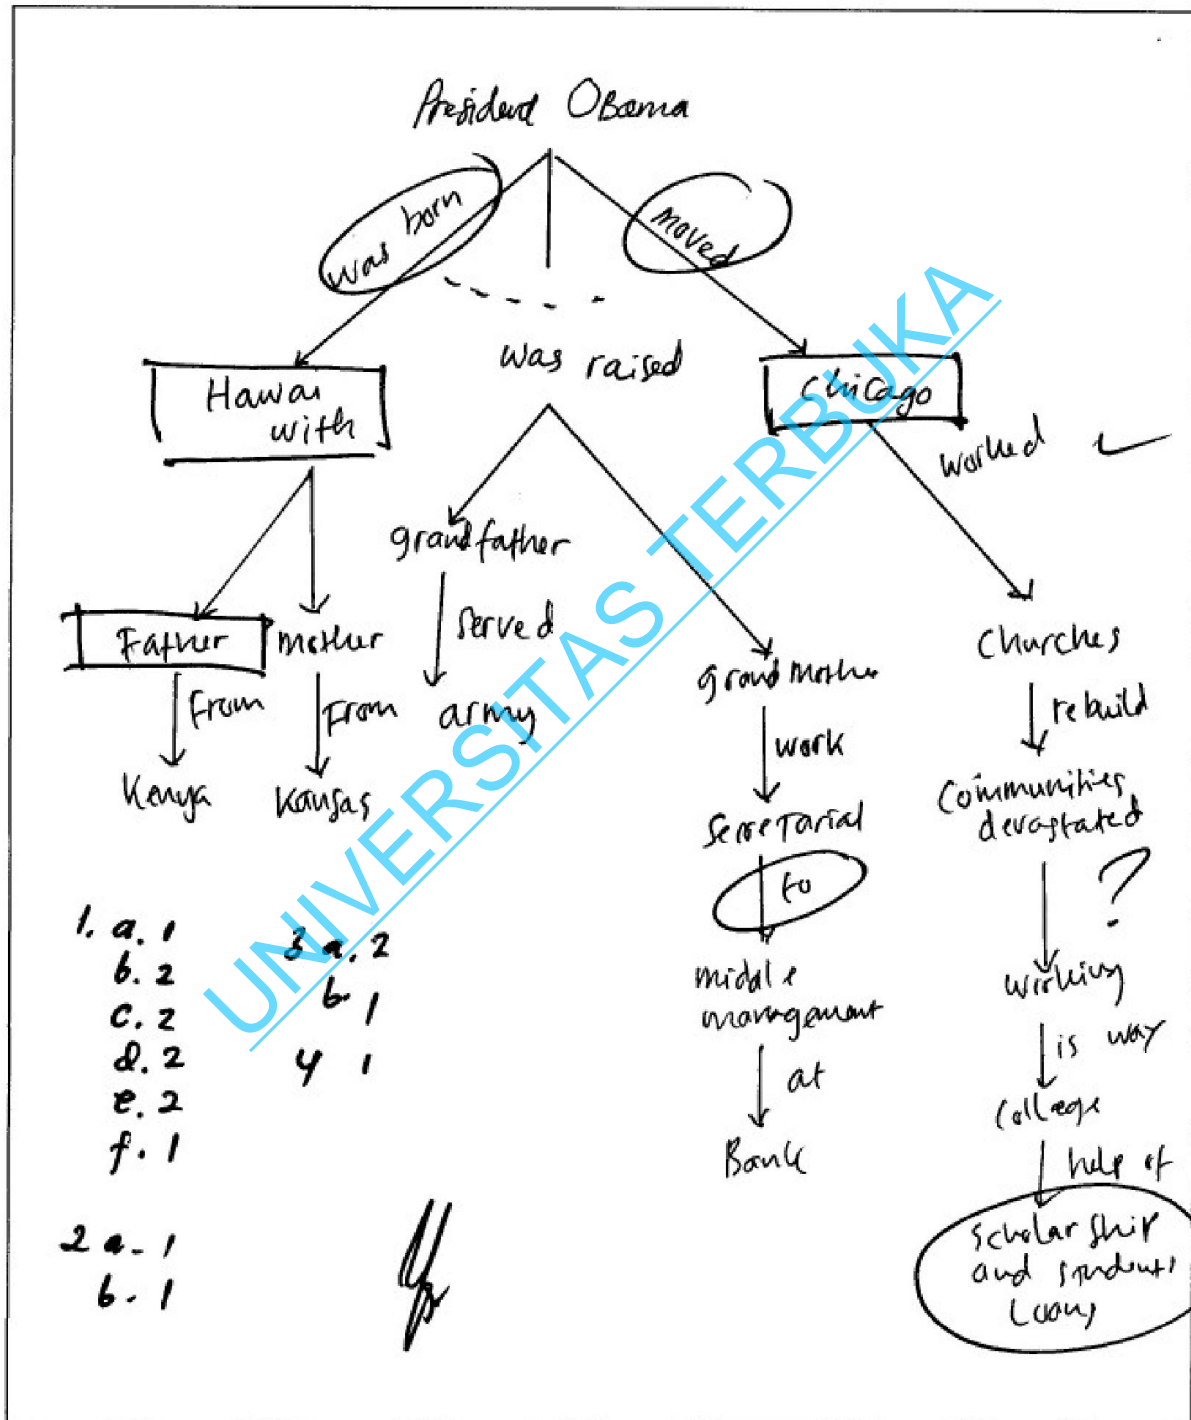 President Obama
was born
moved
was raised
Hawai
with
Chicago
worked
grandfather
served
army
Father
mother
From
From
Kenya
Kansas
grand mother
work
Secretarial
to
middle
management
at
Bank
Churches
rebuild
Communities
devastated
?
working
is way
College
help of
scholarship
and students
Loans
1. a. 1
b. 2
c. 2
d. 2
e. 2
f. 1
2 a. 1
b. 1
3 a. 2
b. 1
4 1
UNIVERSITAS TERBUKA